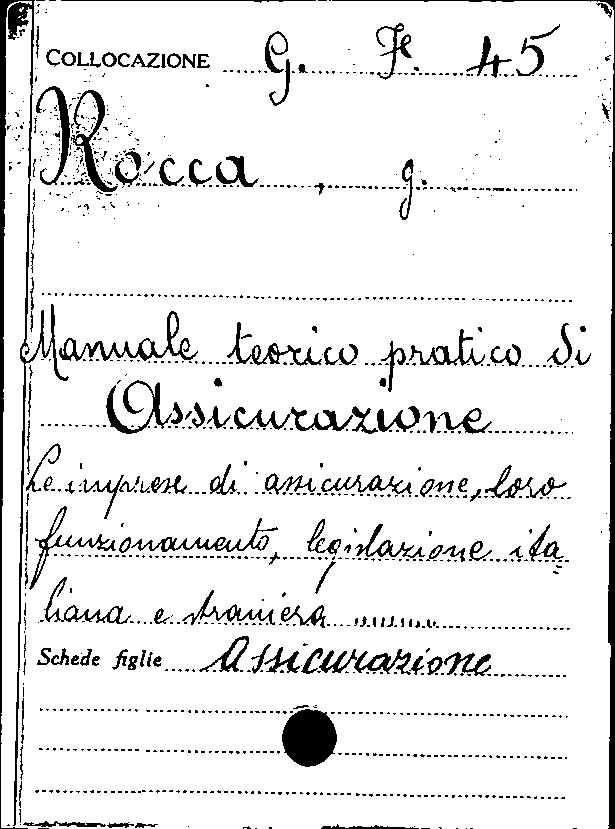 COLLOCAZIONE G. F. 45
Rocca, g.
Manuale teorico pratico di
Assicurazione
Le imprese di assicurazione, loro
funzionamento, legislazione ita=
liana e straniera .........
Schede figlie Assicurazione